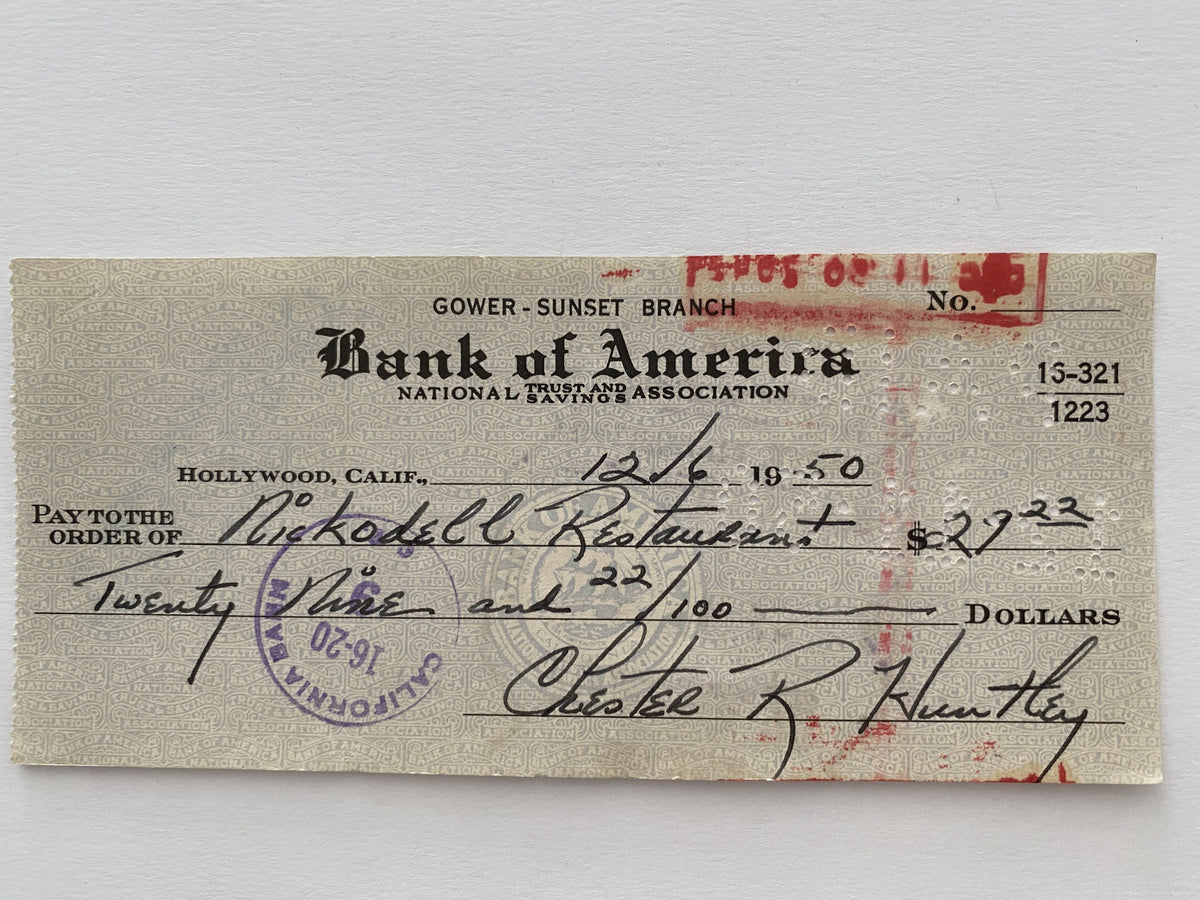 GOWER - SUNSET BRANCH
No.
Bank of America
NATIONAL TRUST AND SAVINGS ASSOCIATION
16-321
1223
HOLLYWOOD, CALIF., 12/6 1950
PAY TO THE ORDER OF Nickodell Restaurant $29 22
Twenty Nine and 22/100 DOLLARS
CALIFORNIA BANK
16-20
Chester R Huntley